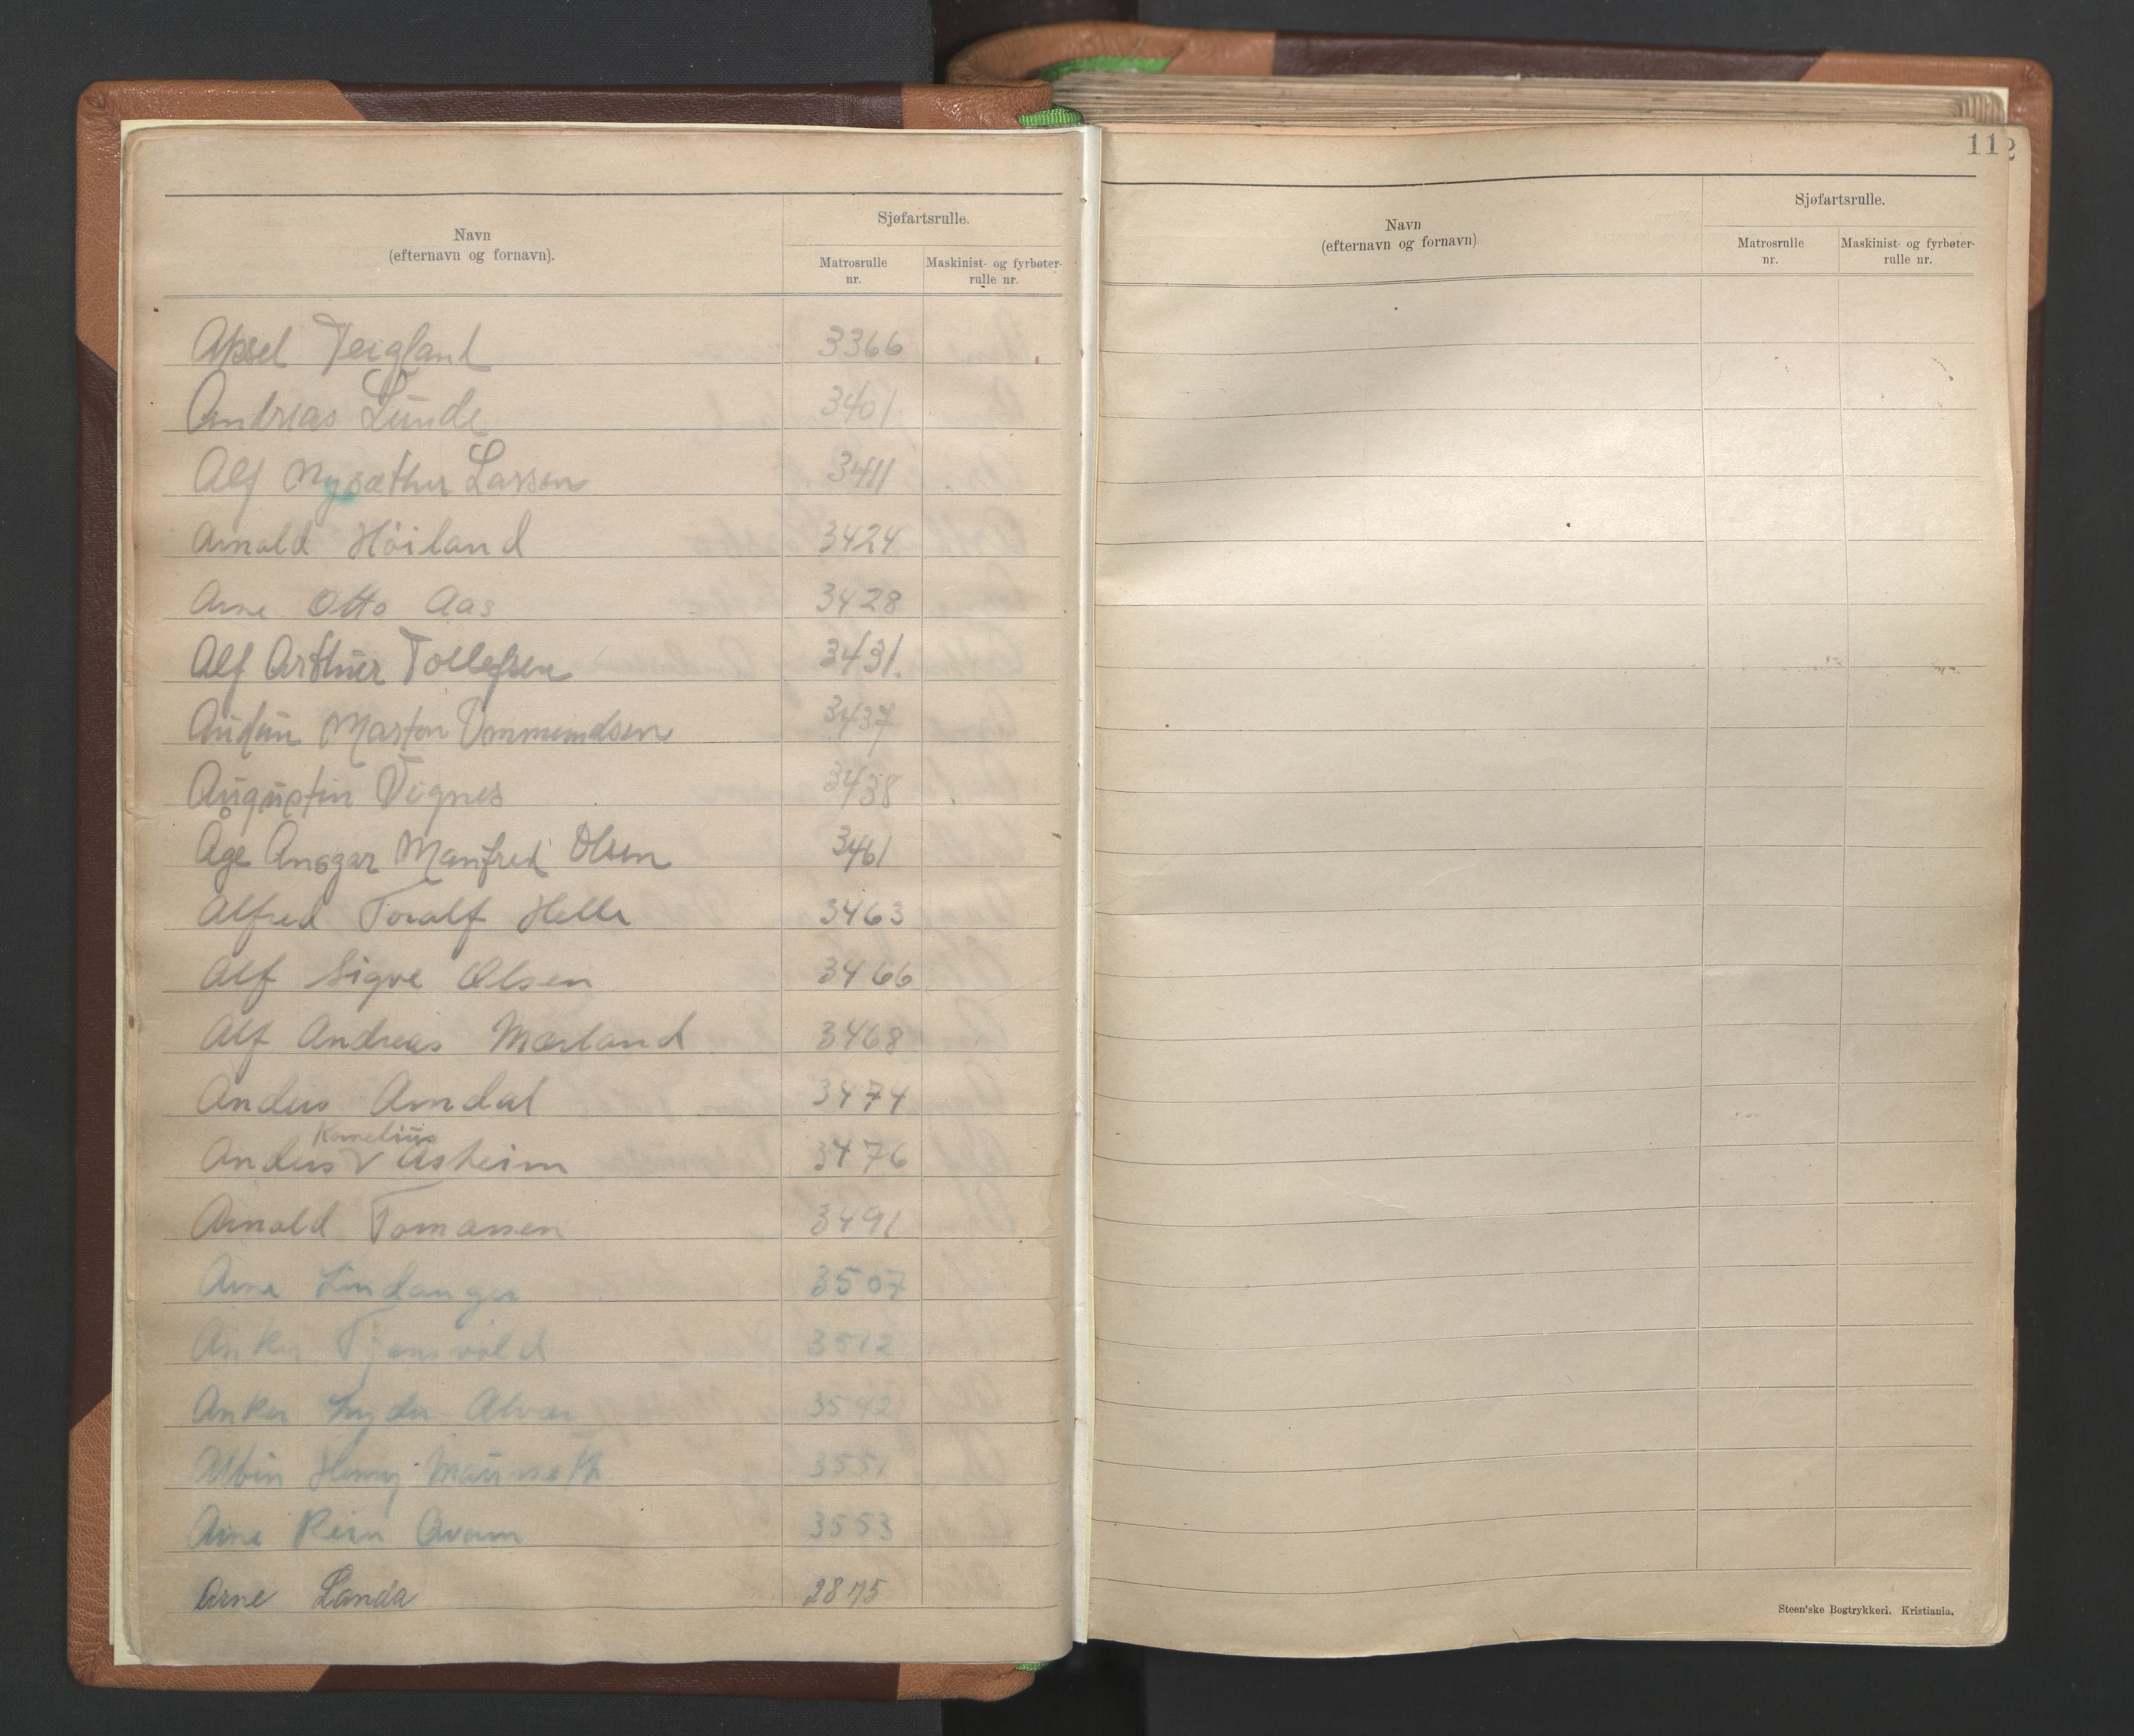 Navn
(efternavn og fornavn).
Sjøfartsrulle.
Matrosrulle
nr.
Maskinist- og fyrbøter-
rulle nr.
Aksel Teigland 3366
Andreas Lunde 3401
Alf Nysæther Larsen 3411
Arnold Höiland 3424
Arne Otto Aas 3428
Alf Arthur Tollefsen 3431.
Audun Marton Ommundsen 3437
Augustin Vignes 3438
Åge Ansgar Manfred Olsen 3461
Alfred Toralf Helle 3463
Alf Sigve Olsen 3466
Alf Andreas Mæland 3468
Anders Arndal 3474
Kornelius
Anders V Åsheim 3476
Arnold Tomassen 3491
Arne Lindanger 3507
Anker Tjensvold 3512
Anker Lyder Alvær 3542
Albin Henry Maurseth 3551
Arne Rein Qvam 3553
Arne Landa 2875
112
Navn
(efternavn og fornavn).
Sjøfartsrulle.
Matrosrulle
nr.
Maskinist- og fyrbøter-
rulle nr.
Steen'ske Bogtrykkeri. Kristiania.